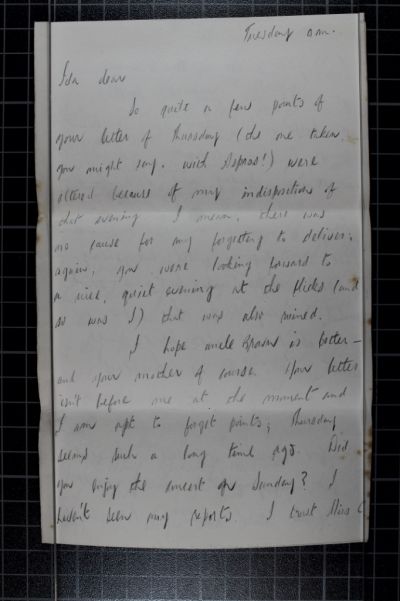 Tuesday a.m.
Ida dear
So quite a few points of
your letter of Thursday (the one taken
you might say, with Aspros!) were
altered because of my indisposition of
that evening. I mean, there was
no cause for my forgetting to deliver;
again, you were looking forward to
a nice, quiet evening at the flicks (and
so was I) that was also ruined.
I hope uncle is better –
and your mother of course. Your letter
isn't before me at the moment and
I am apt to forget points; Thursday
seems such a long time ago. Did
you enjoy the concert on Sunday? I
haven't seen any reports. I trust Miss C